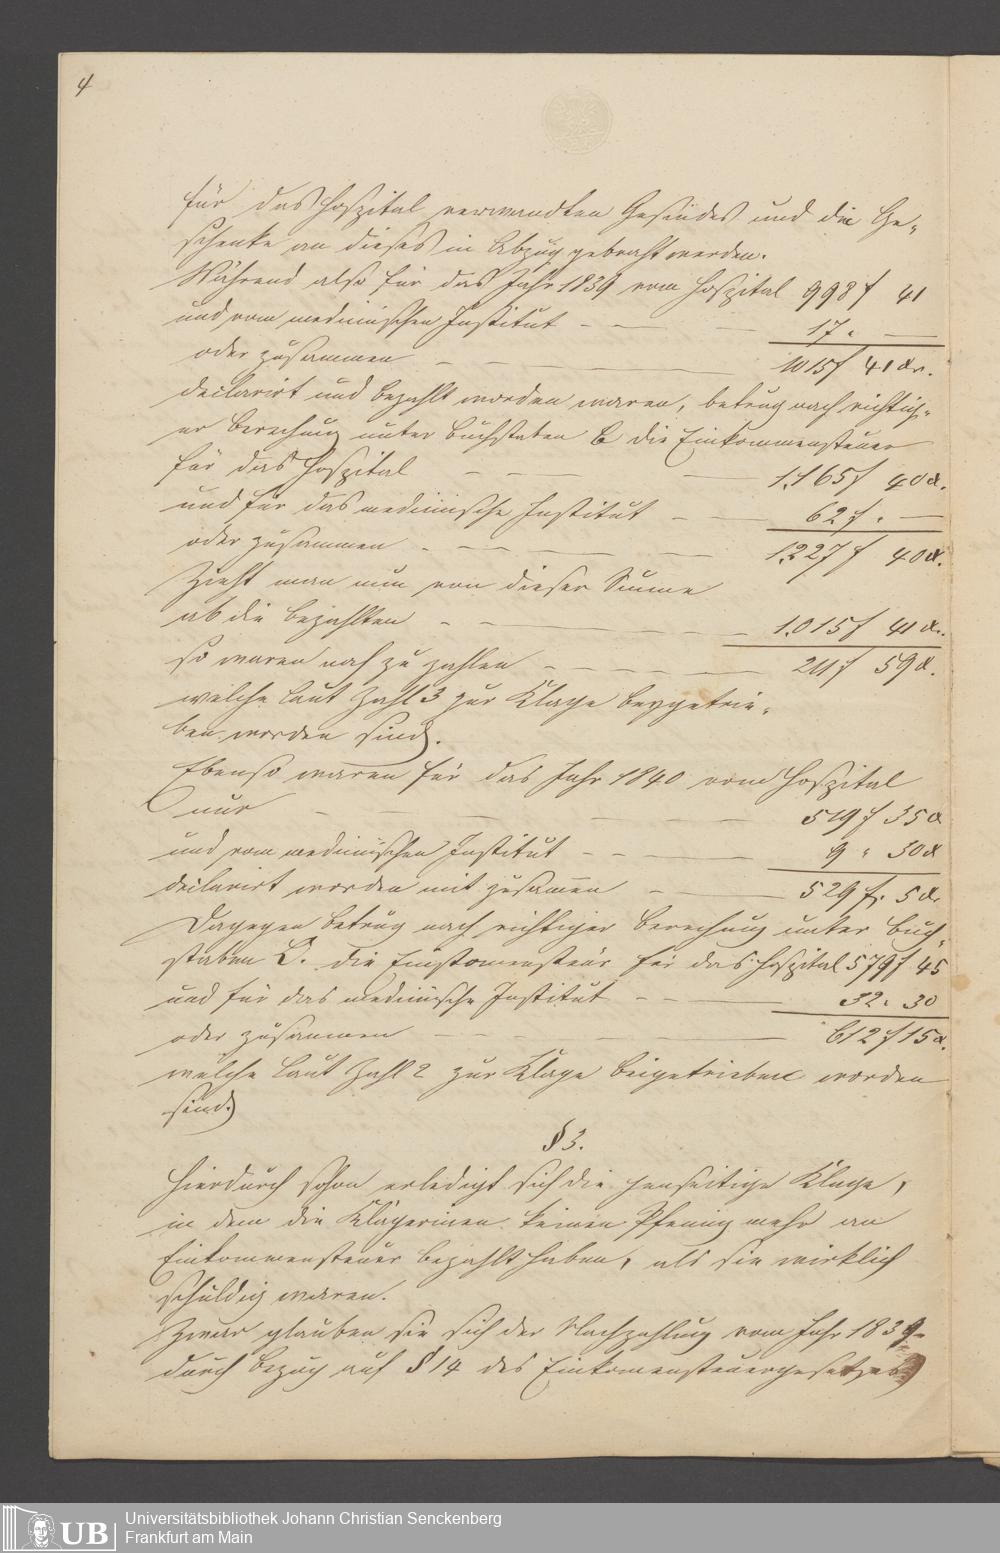 4
für das Hospital verwandten Gesindes und die Ge-
schenke an dieses in Abzug gebracht werden.
Während also für das Jahr 1839 vom Hospital 998 f 41
und vom medicinischen Institut - - - 17 " —
oder zusammen - - - 1015 f 41 xr.
declarirt und bezahlt worden waren, betrug nach richtig-
er Berechnung unter Buchstaben B die Einkommensteuer
für das Hospital - - - 1,165 f 40 x.
und für das medicinische Institut - - 62 f " —
oder zusammen - - - 1,227 f 40 x.
Zieht man nun von dieser Summe
ab die bezahlten - - - 1,015 f 41 x.
so waren noch zu zahlen - - - 211 f 59 x.
welche laut Zahl 3 zur Klage beygetrie-
ben worden sind.
Ebenso waren für das Jahr 1840 vom Hospital
nur - - - 519 f 35 x
und vom medicinischen Institut - - - 9 " 30 x
declarirt worden mit zusammen - - 529 f. 5 x.
Dagegen betrug nach richtiger Berechnung unter Buch-
staben C. die Einkommensteur für das Hospital 579 f 45
und für das medicinische Institut - - 32 " 30
oder zusammen - - - 612 f 15 x.
welche laut Zahl 2 zur Klage beigetrieben worden
sind.
§ 3.
Hierdurch schon erledigt sich die jenseitige Klage,
in dem die Klägerinen keinen Pfennig mehr an
Einkommensteuer bezahlt haben, als sie wirklich
schuldig waren.
Zwar glauben sie sich der Nachzahlung vom Jahr 1839
durch Bezug auf § 14 des Einkomensteuergesetzes
UB
Universitätsbibliothek Johann Christian Senckenberg
Frankfurt am Main